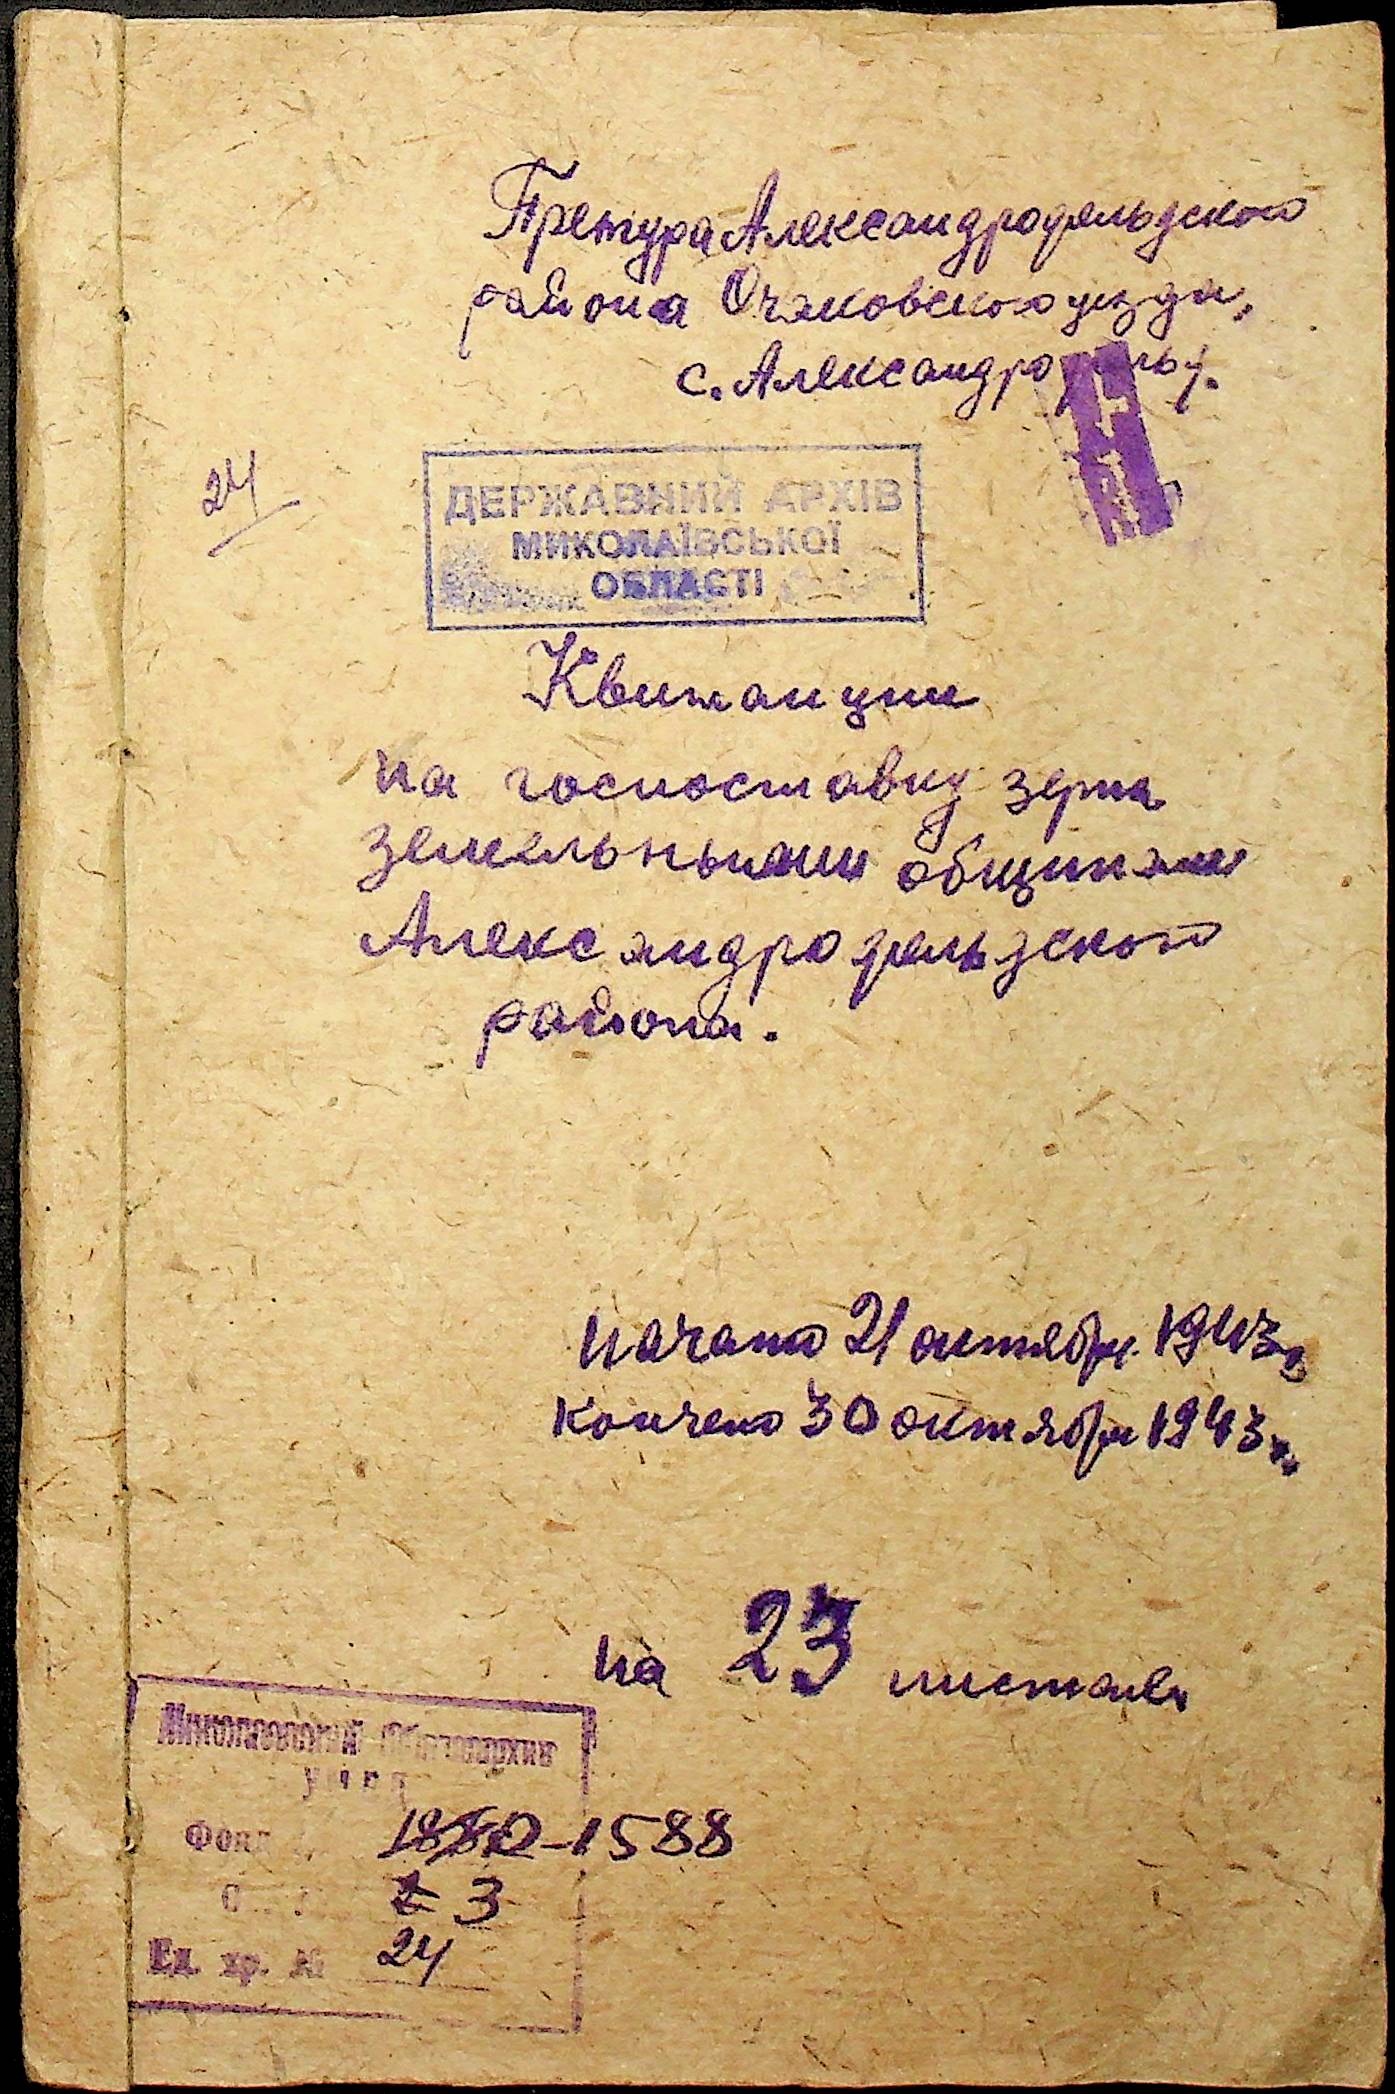 Претура Александродальдского
района Очаковского уезда,
с. Александродальд.
24
ДЕРЖАВНИЙ АРХІВ
МИКОЛАЇВСЬКОЇ
ОБЛАСТІ
Квитанции
на госпоставку зерна
земельными общинами
Александродальдского
района.
Начато 21 октября 1943г.
Кончено 30 октября 1943г.
на 23 листах
Николаевский Облгосархив
Фонд 1880-1588
2 3
Ед. хр. № 24